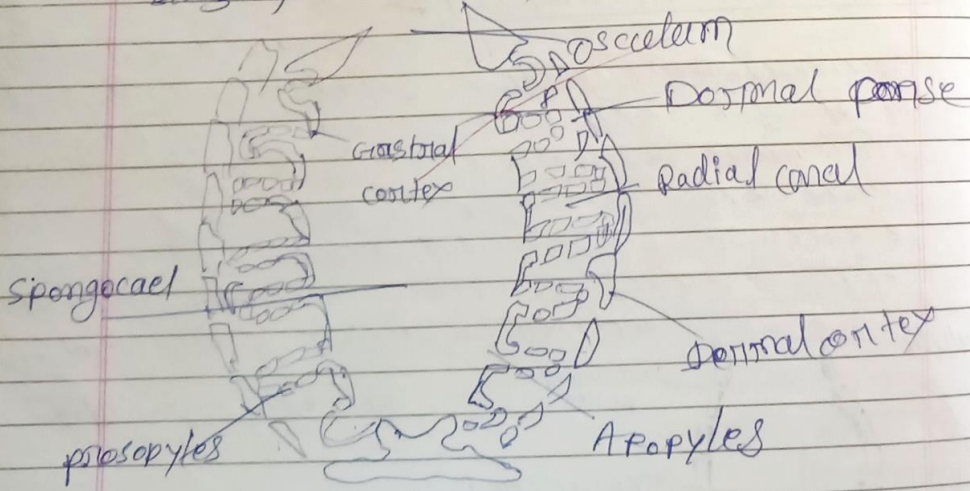 osculum
Dormal porse
Gastrial
cortex
Radial canal
Spongocael
Dermal cortex
prosopyles
Apopyles